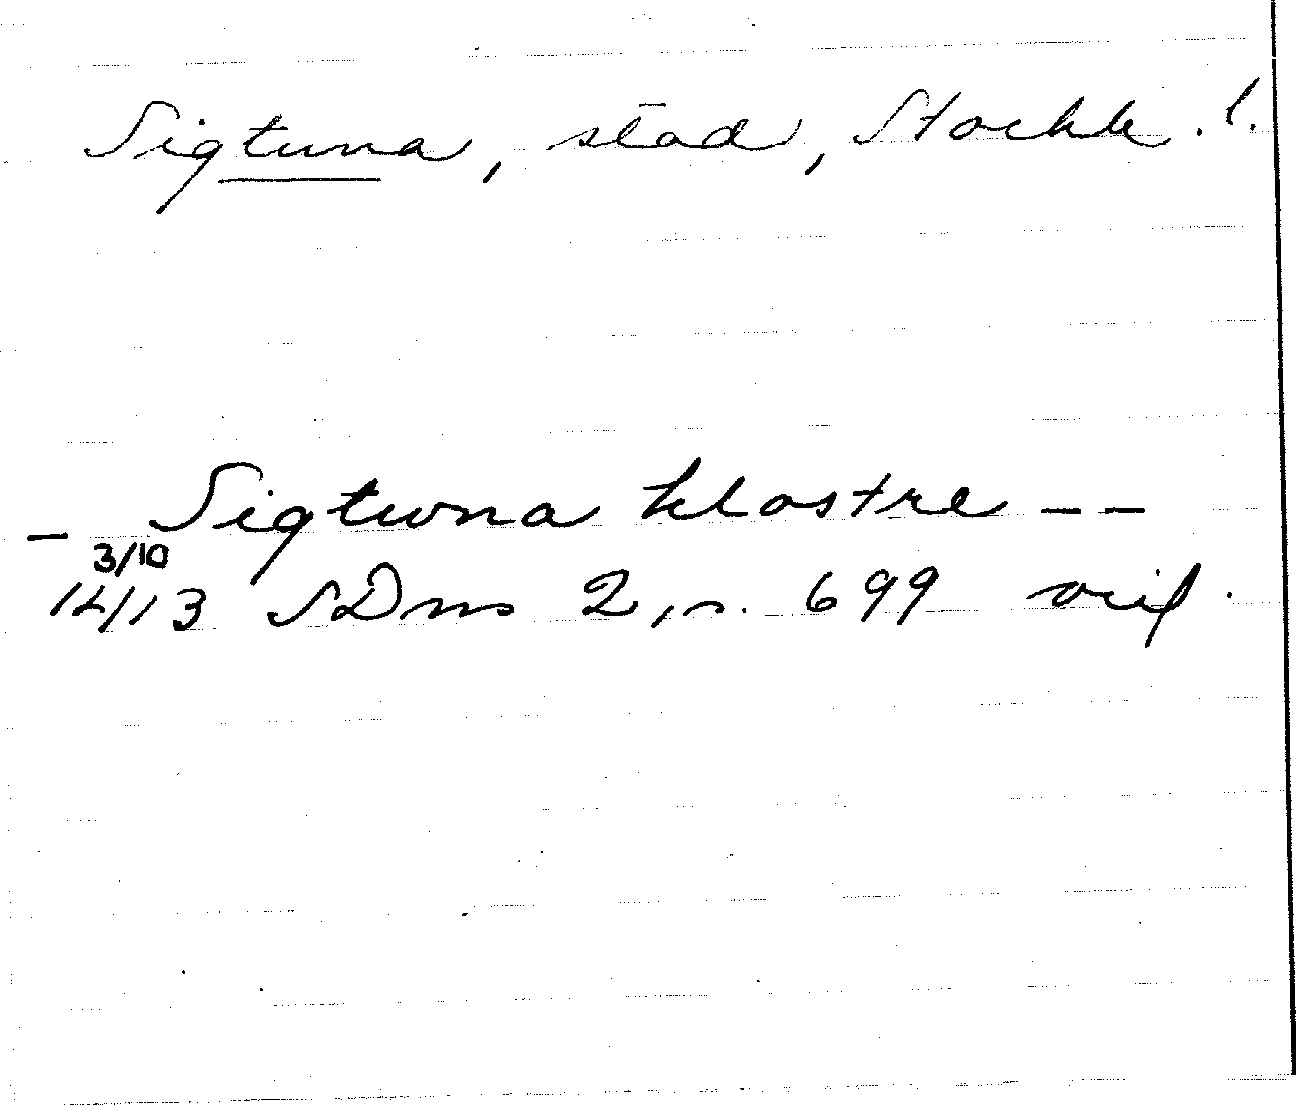 Sigtuna, stad, Stockh. l.
– Sigtuna klostre – –
3/10
1413 SDns 2, s. 699 oril.